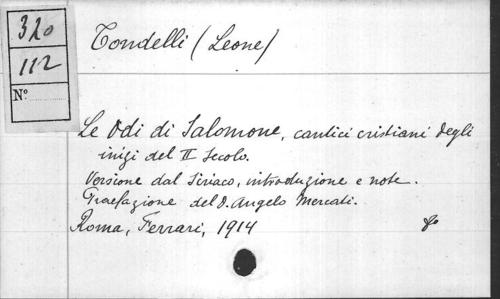 320
112
Nº
Tondelli (Leone)
Le Odi di Salomone, cantici cristiani degli
inizi del II Secolo.
Versione dal Siriaco, introduzione e note.
Praefazione del D. Angelo Mercati.
Roma, Ferrari, 1914